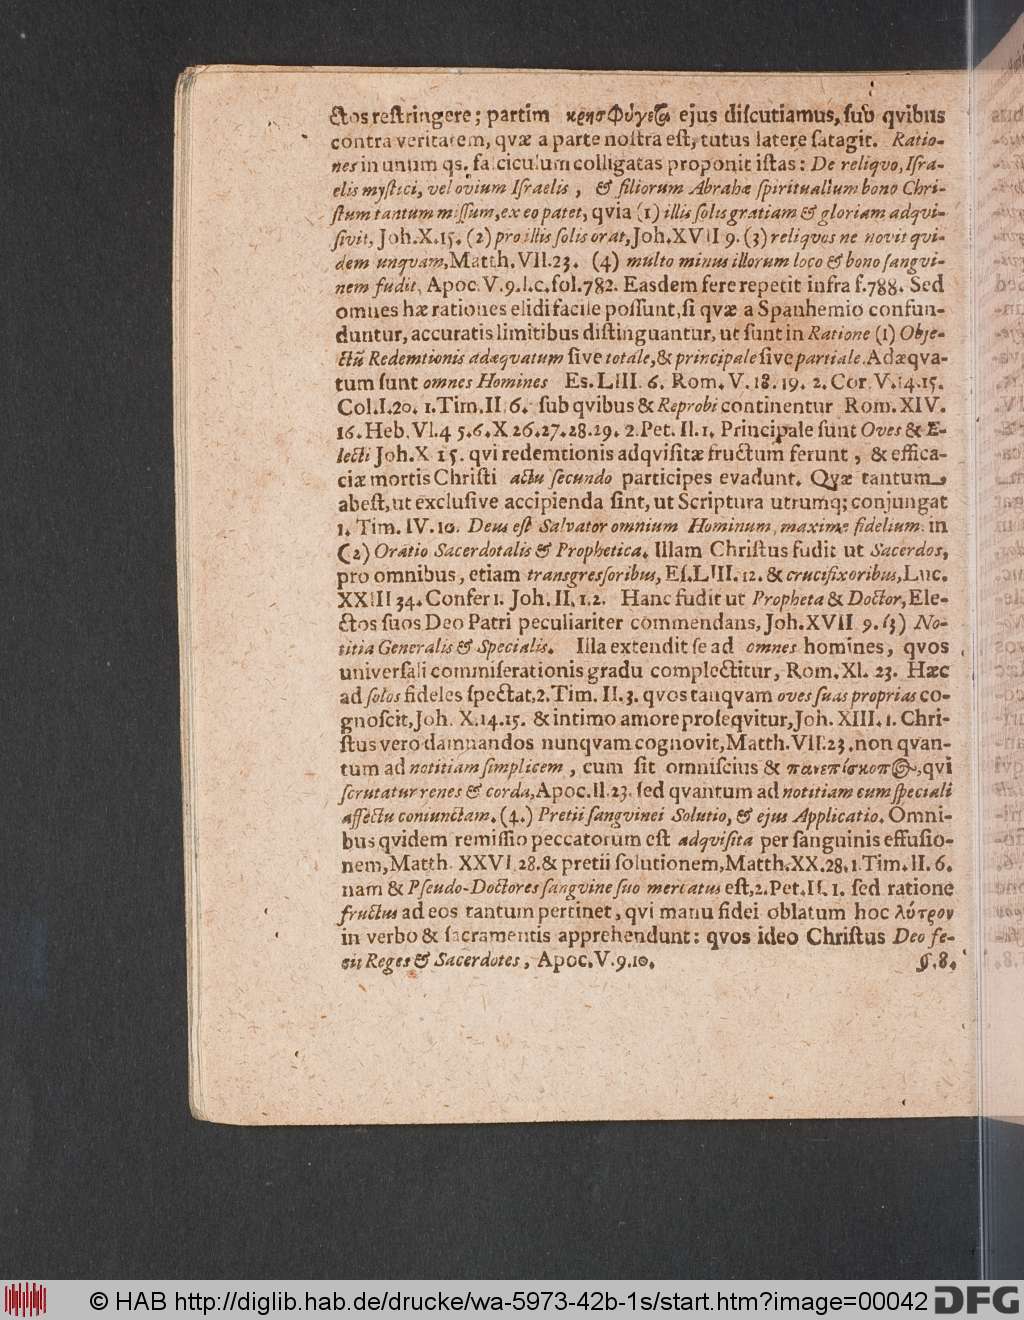 ctos reſtringere; partim κρησφύγεζα ejus diſcutiamus, ſub qvibus
contra veritatem, qvæ a parte noſtra eſt, tutus latere ſatagit. Ratio-
nes in unum qs. faſciculum colligatas proponit iſtas: De reliqvo, Iſra-
elis myſtici, vel ovium Iſraelis, & filiorum Abrahæ ſpiritualium bono Chri-
ſtum tantum miſſum, ex eo patet, qvia (1) illis ſolis gratiam & gloriam adqvi-
ſivit, Joh. X. 15. (2) pro illis ſolis orat, Joh. XVII 9. (3) reliqvos ne novit qvi-
dem unqvam, Matth. VII. 23. (4) multo minus illorum loco & bono ſangvi-
nem fudit, Apoc. V. 9. l. c. fol. 782. Easdem fere repetit infra f. 788. Sed
omnes hæ rationes elidi facile poſſunt, ſi qvæ a Spanhemio confun-
duntur, accuratis limitibus diſtinguantur, ut ſunt in Ratione (1) Obje-
ctũ Redemtionis adæquatum ſive totale, & principale ſive partiale. Adæqva-
tum ſunt omnes Homines Eſ. LIII. 6. Rom. V. 18. 19. 2. Cor. V. 14. 15.
Col. I. 20. 1. Tim. II. 6. ſub qvibus & Reprobi continentur Rom. XIV.
16. Heb. VI. 4 5. 6. X 26. 27. 28. 29. 2. Pet. II. 1. Principale ſunt Oves & E-
lecti Joh. X 15. qvi redemtionis adqviſitæ fructum ferunt, & effica-
ciæ mortis Chriſti actu ſecundo participes evadunt. Qvæ tantum
abeſt, ut excluſive accipienda ſint, ut Scriptura utrumq; conjungat
1. Tim. IV. 10. Deus eſt Salvator omnium Hominum, maxime fidelium. in
(2) Oratio Sacerdotalis & Prophetica. Illam Chriſtus fudit ut Sacerdos,
pro omnibus, etiam transgresſoribus, Eſ. LIII. 12. & crucifixoribus, Luc.
XXIII 34. Confer 1. Joh. II. 1. 2. Hanc fudit ut Propheta & Doctor, Ele-
ctos ſuos Deo Patri peculiariter commendans, Joh. XVII 9. (3) No-
titia Generalis & Specialis. Illa extendit ſe ad omnes homines, qvos
univerſali commiſerationis gradu complectitur, Rom. XI. 23. Hæc
ad ſolos fideles ſpectat, 2. Tim. II. 3. qvos tanqvam oves ſuas proprias co-
gnoſcit, Joh. X. 14. 15. & intimo amore proſeqvitur, Joh. XIII. 1. Chri-
ſtus vero damnandos nunqvam cognovit, Matth. VII. 23. non qvan-
tum ad notitiam ſimplicem, cum ſit omniſcius & πανεπίσκοπος, qvi
ſcrutatur renes & corda, Apoc. II. 23. ſed qvantum ad notitiam cum ſpeciali
affectu coniunctam. (4.) Pretii ſangvinei Solutio, & ejus Applicatio. Omni-
bus qvidem remiſſio peccatorum eſt adqviſita per ſanguinis effuſio-
nem, Matth. XXVI 28. & pretii ſolutionem, Matth. XX. 28. 1. Tim. II. 6.
nam & Pſeudo-Doctores ſangvine ſuo mercatus eſt, 2. Pet. II. 1. ſed ratione
fructus ad eos tantum pertinet, qvi manu fidei oblatum hoc λύτρον
in verbo & ſacramentis apprehendunt: qvos ideo Chriſtus Deo fe-
cit Reges & Sacerdotes, Apoc. V. 9. 10. §. 8.
© HAB http://diglib.hab.de/drucke/wa-5973-42b-1s/start.htm?image=00042 DFG